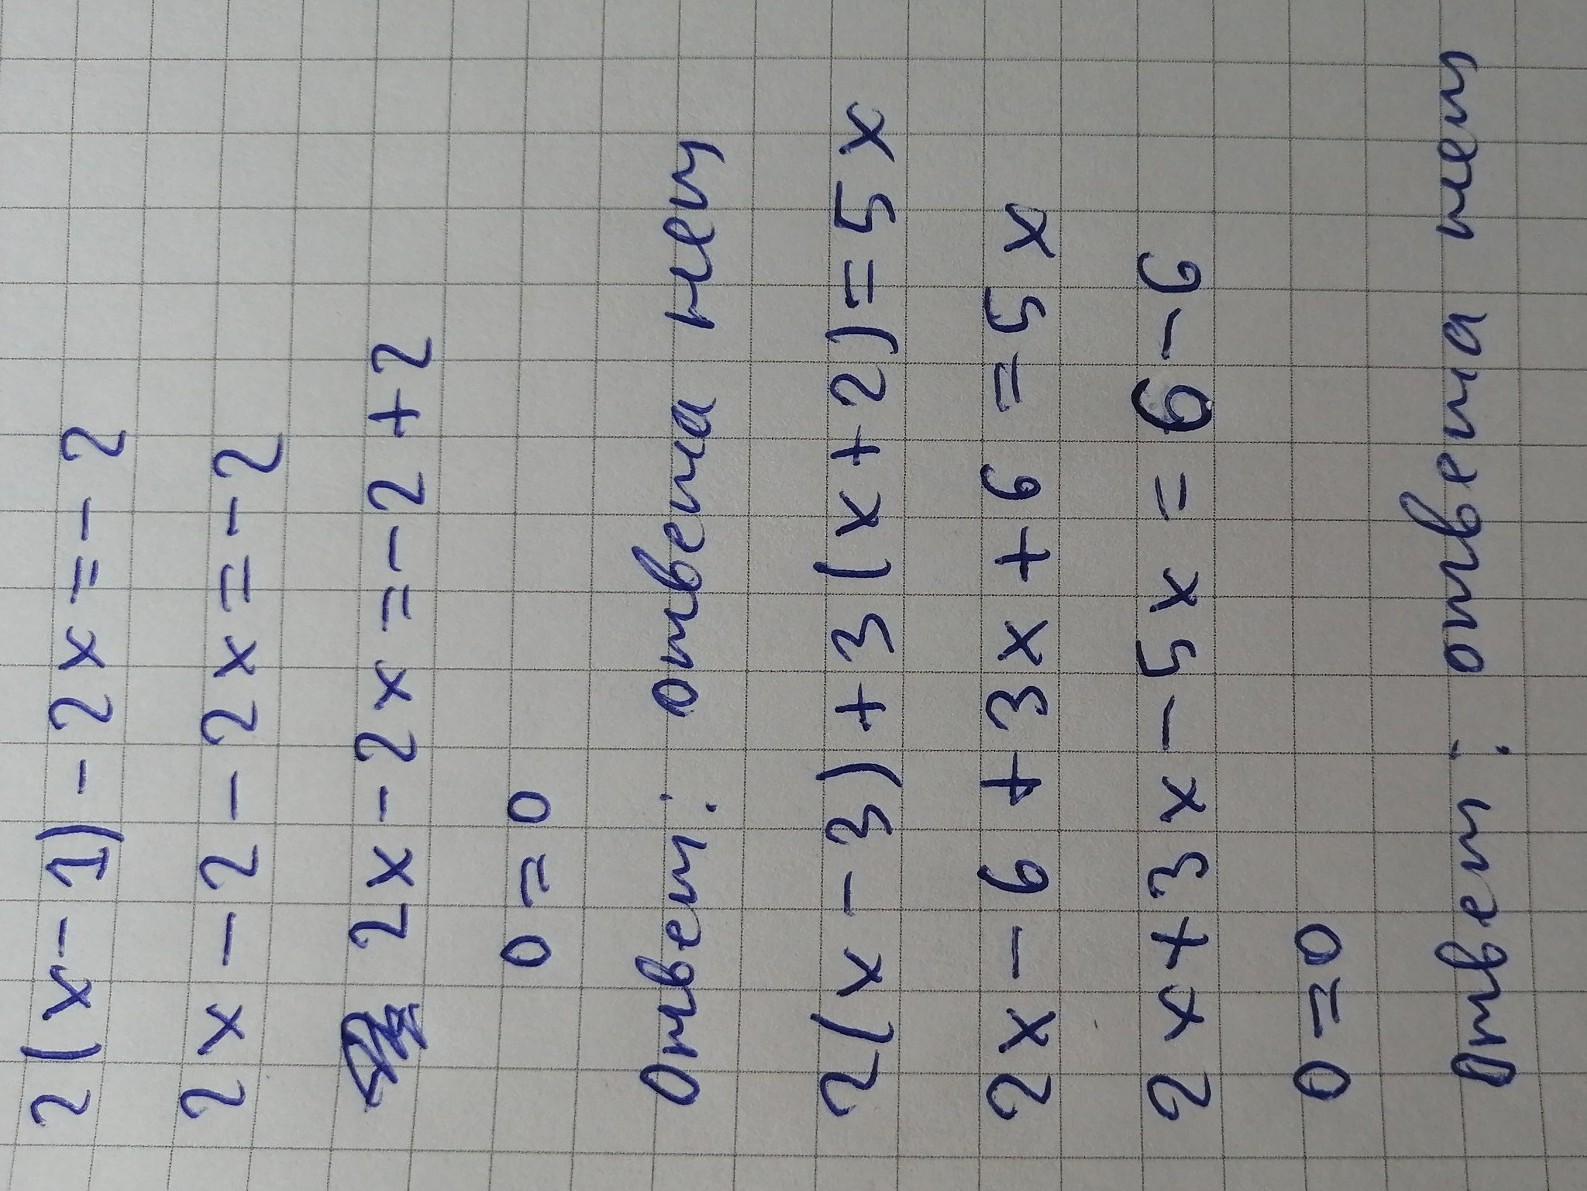 2(x-1)-2x=-2
2x-2-2x=-2
2x-2x=-2+2
0=0
Ответ: ответа нет
2(x-3)+3(x+2)=5x
2x-6+3x+6=5x
2x+3x-5x=6-6
0=0
Ответ: ответа нет